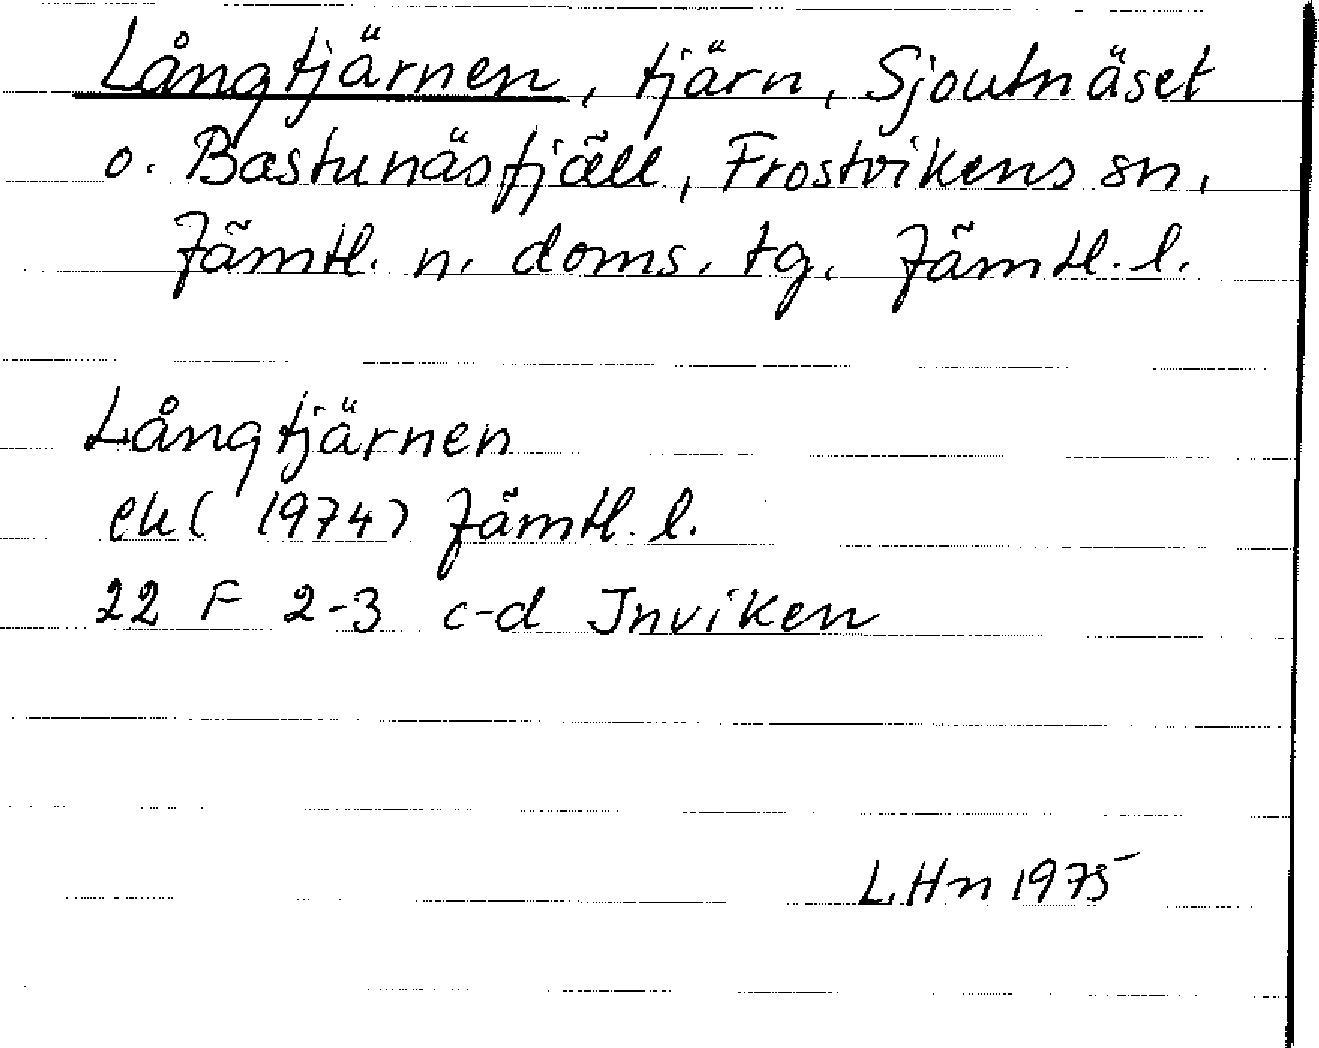 Långtjärnen, tjärn, Sjoutnäset
o. Bastunäsfjäll, Frostvikens sn,
Jämtl. n. doms. tg. Jämtl. l.
Långtjärnen
ek (1974) Jämtl. l.
22 F 2-3 c-d Inviken
L.Hn 1975